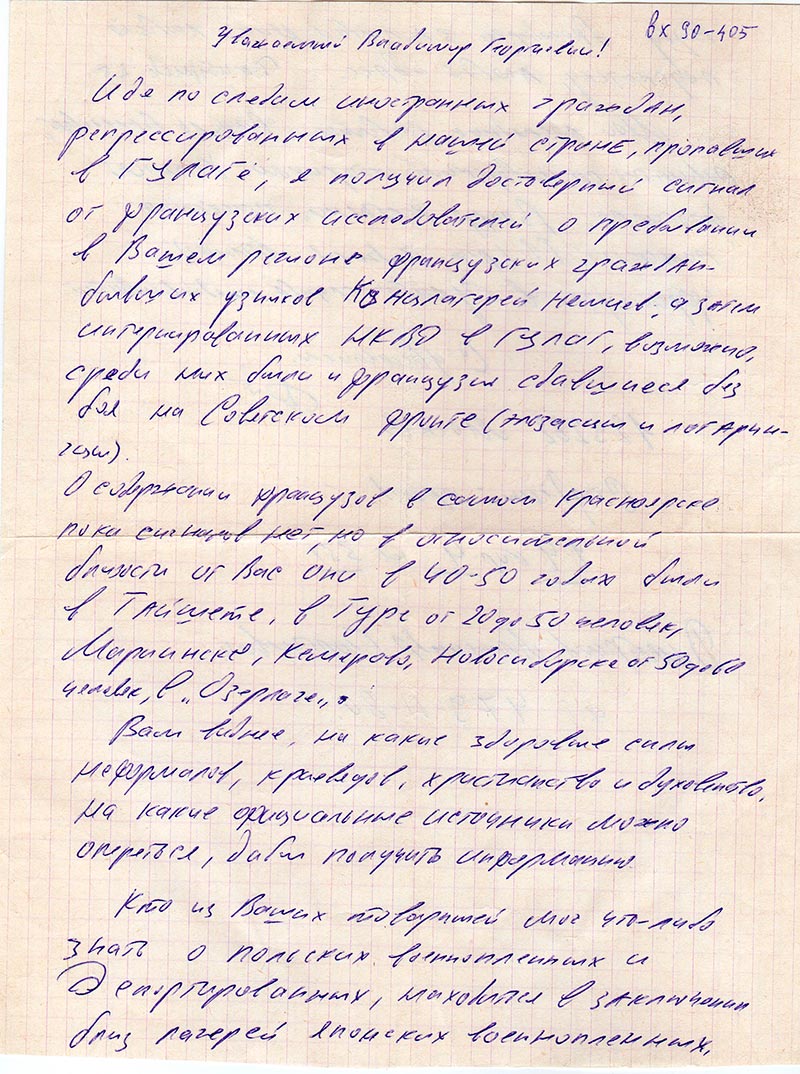 вх 90-405
Уважаемый Владимир Георгиевич!
Идя по следам иностранных граждан,
репрессированных в нашей стране, пропавших
в ГУЛАГе, я получил достоверный сигнал
от французских исследователей о пребывании
в Вашем регионе французских граждан-
бывших узников Концлагерей Немцев, а затем
интернированных НКВД в ГУЛАГ, возможно,
среди них были и французы сдавшиеся без
боя на Советском фронте (эльзасцы и лотарин-
гцы).
О содержании французов в самом Красноярске
пока сигналов нет, но в относительной
близости от Вас они в 40-50 годах были
в Тайшете, в Туре от 20 до 50 человек,
Мариинске, Кемерово, Новосибирске от 50 до 60
человек, в „Озерлаге„.
Вам виднее, на какие здоровые силы
неформалов, краеведов, христианства и духовенства,
на какие официальные источники можно
опереться, дабы получить информацию.
Кто из Ваших товарищей мог что-либо
знать о польских военнопленных и
Депортированных, находится в заключении
близ лагерей японских военнопленных,